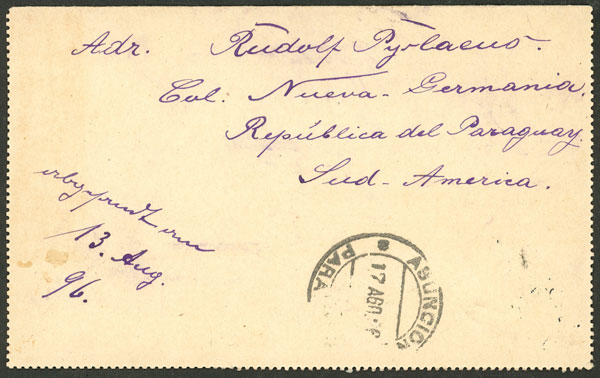 Adr. Rudolf Pyrlaeus.
Col. Nueva-Germania.
República del Paraguay.
Sud-America.
13. Aug.
96.
ASUNCION
PARA
17 AGO